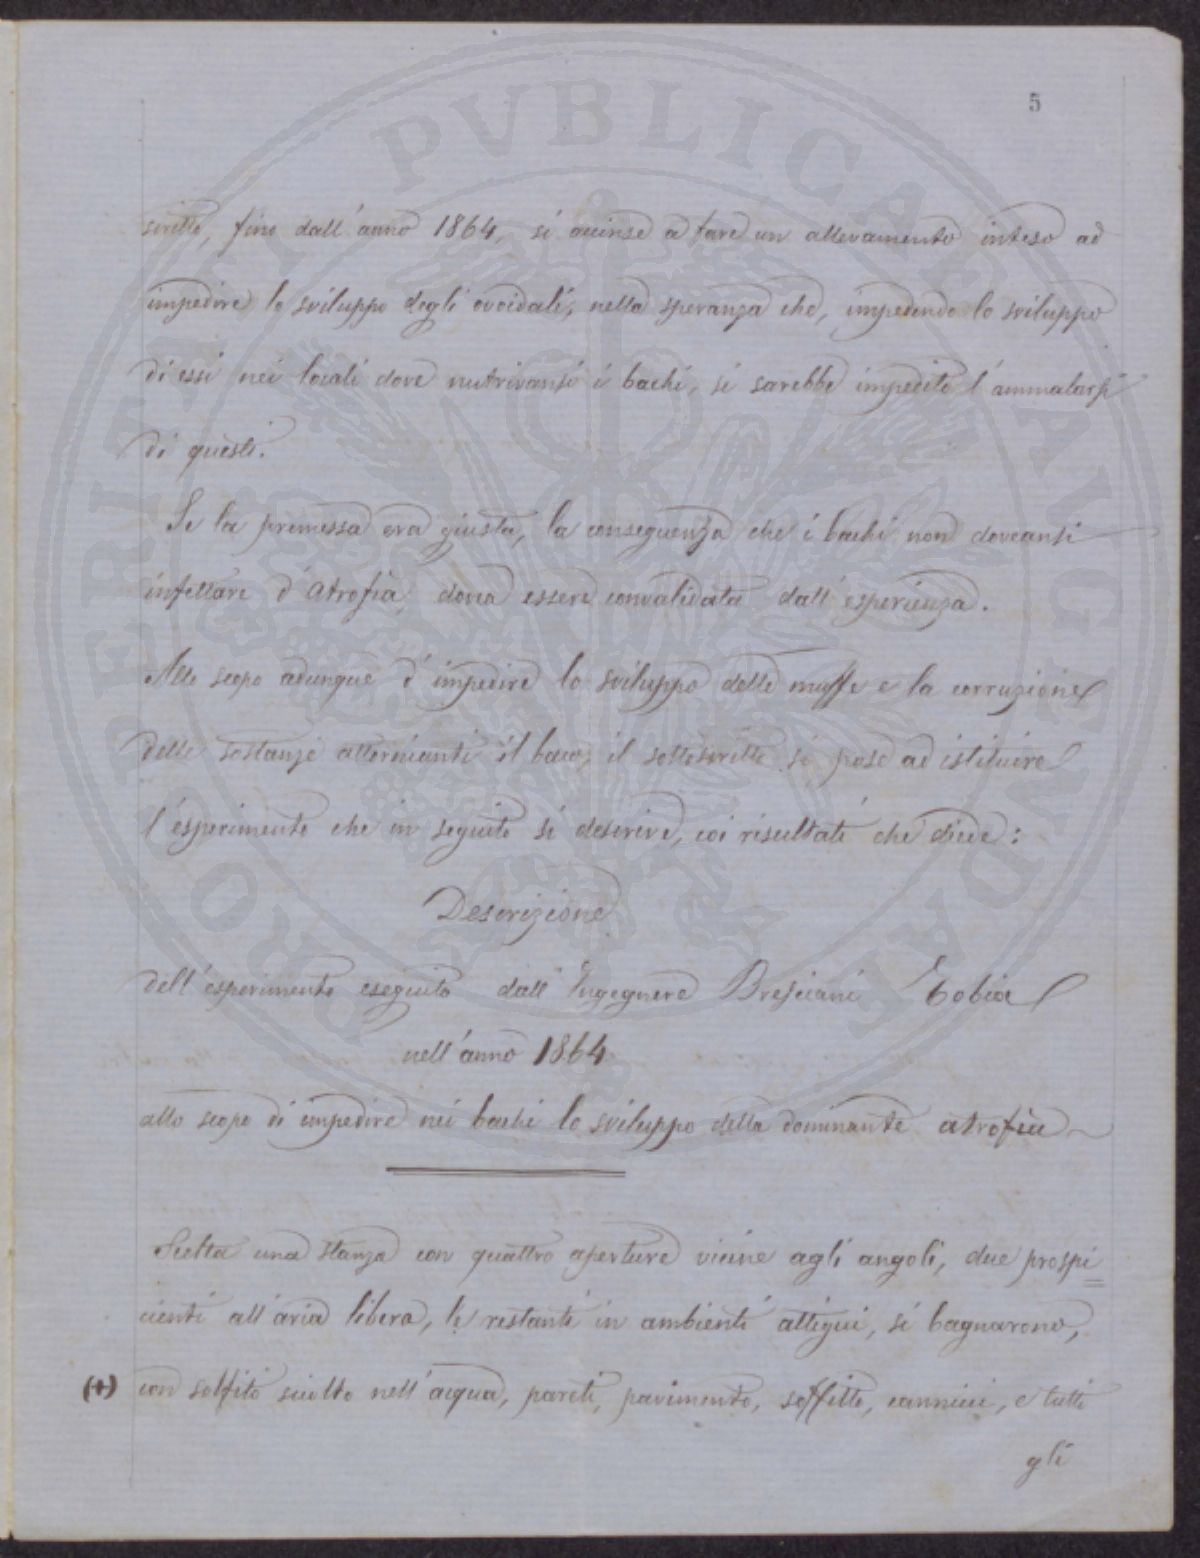 5
scritto, fino dall'anno 1864, si accinse a fare un allevamento inteso ad
impedire lo sviluppo degli ovoidali, nella speranza che, impedendo lo sviluppo
di essi nei locali dove nutrivansi i bachi, si sarebbe impedito l'ammalarsi
di questi.
Se la premessa era giusta, la conseguenza che i bachi non doveansi
infettare d'atrofia, dovea essere convalidata dall'esperienza.
Allo scopo adunque d'impedire lo sviluppo delle muffe e la corruzione
delle sostanze attornianti il baco, il sottoscritto si pose ad istituire
l'esperimento che in seguito si descrive, coi risultati che diede:
Descrizione
dell'esperimento eseguito dall'Ingegnere Bresciani Tobia
nell'anno 1864
allo scopo di impedire nei bachi lo sviluppo della dominante atrofia
Scelta una stanza con quattro aperture vicine agli angoli, due prospi=
cienti all'aria libera, le restanti in ambienti attigui, si bagnarono,
(+) con solfito sciolto nell'acqua, pareti, pavimento, soffitto, cannicci, e tutti
gli
PROSPERITATI PVBLICAE AVGENDAE